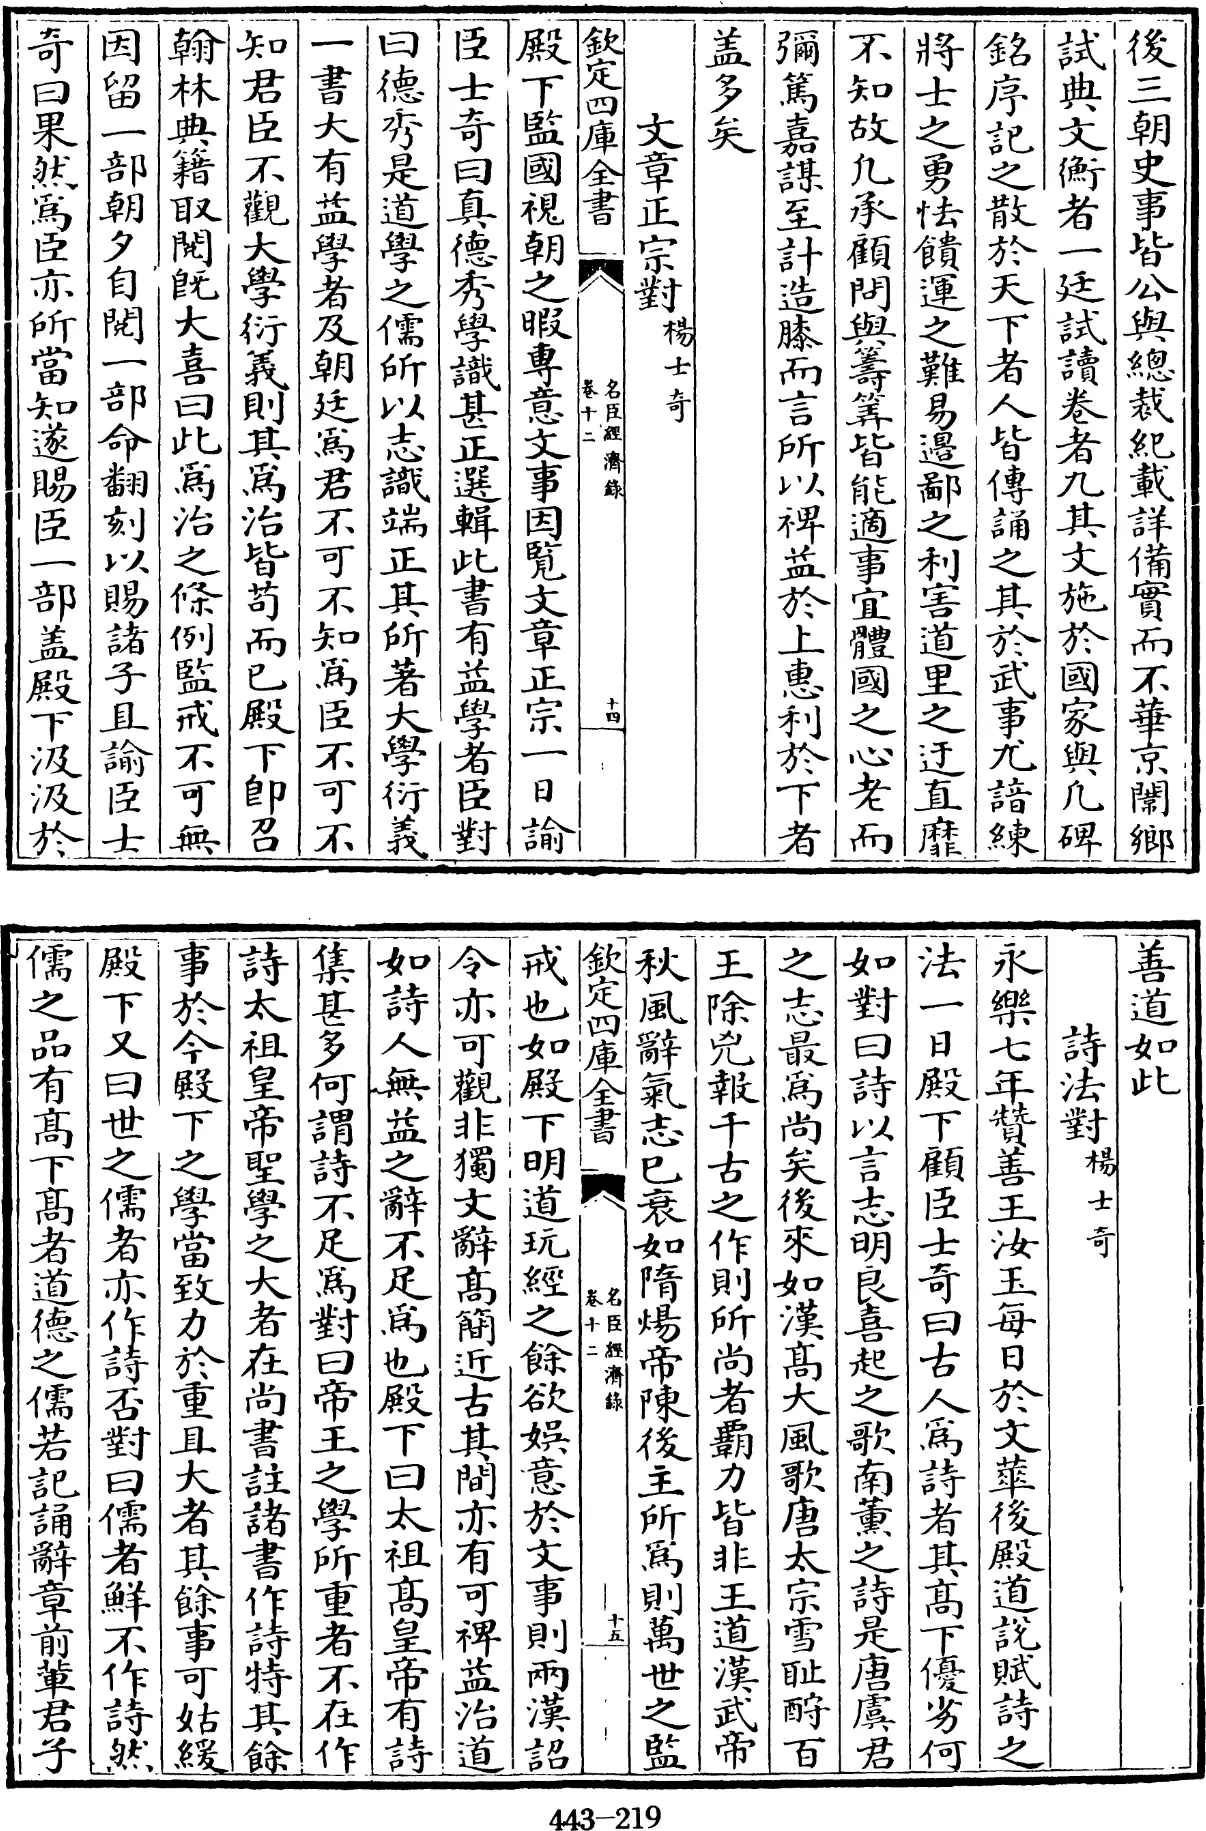 後三朝史事皆公與總裁紀載詳備實而不華京闈鄉
試典文衡者一廷試讀卷者九其文施於國家與凡碑
銘序記之散於天下者人皆傳誦之其於武事尤諳練
將士之勇怯饋運之難易邊鄙之利害道里之迂直靡
不知故凡承顧問與籌筭皆能適事宜體國之心老而
彌篤嘉謀至計造膝而言所以裨益於上惠利於下者
盖多矣
文章正宗對楊士奇
欽定四庫全書
名臣經濟錄
卷十二
十四
殿下監國視朝之暇専意文事因覧文章正宗一日諭
臣士奇曰真德秀學識甚正選輯此書有益學者臣對
曰德秀是道學之儒所以志識端正其所著大學衍義
一書大有益學者及朝廷爲君不可不知爲臣不可不
知君臣不觀大學衍義則其爲治皆苟而已殿下卽召
翰林典籍取閱旣大喜曰此爲治之條例監戒不可無
因留一部朝夕自閱一部命翻刻以賜諸子且諭臣士
奇曰果然爲臣亦所當知遂賜臣一部盖殿下汲汲於
善道如此
詩法對楊士奇
永樂七年贊善王汝玉每日於文華後殿道說賦詩之
法一日殿下顧臣士奇曰古人爲詩者其髙下優劣何
如對曰詩以言志明良喜起之歌南薫之詩是唐虞君
之志最爲尚矣後來如漢髙大風歌唐太宗雪耻酧百
王除兇報千古之作則所尚者覇力皆非王道漢武帝
秋風辭氣志已衰如隋煬帝陳後主所爲則萬世之監
欽定四庫全書
名臣經濟錄
卷十二
十五
戒也如殿下明道玩經之餘欲娱意於文事則兩漢詔
令亦可觀非獨文辭髙簡近古其間亦有可裨益治道
如詩人無益之辭不足爲也殿下曰太祖髙皇帝有詩
集甚多何謂詩不足爲對曰帝王之學所重者不在作
詩太祖皇帝聖學之大者在尚書註諸書作詩特其餘
事於今殿下之學當致力於重且大者其餘事可姑緩
殿下又曰世之儒者亦作詩否對曰儒者鮮不作詩然
儒之品有髙下髙者道德之儒若記誦辭章前軰君子
443-219